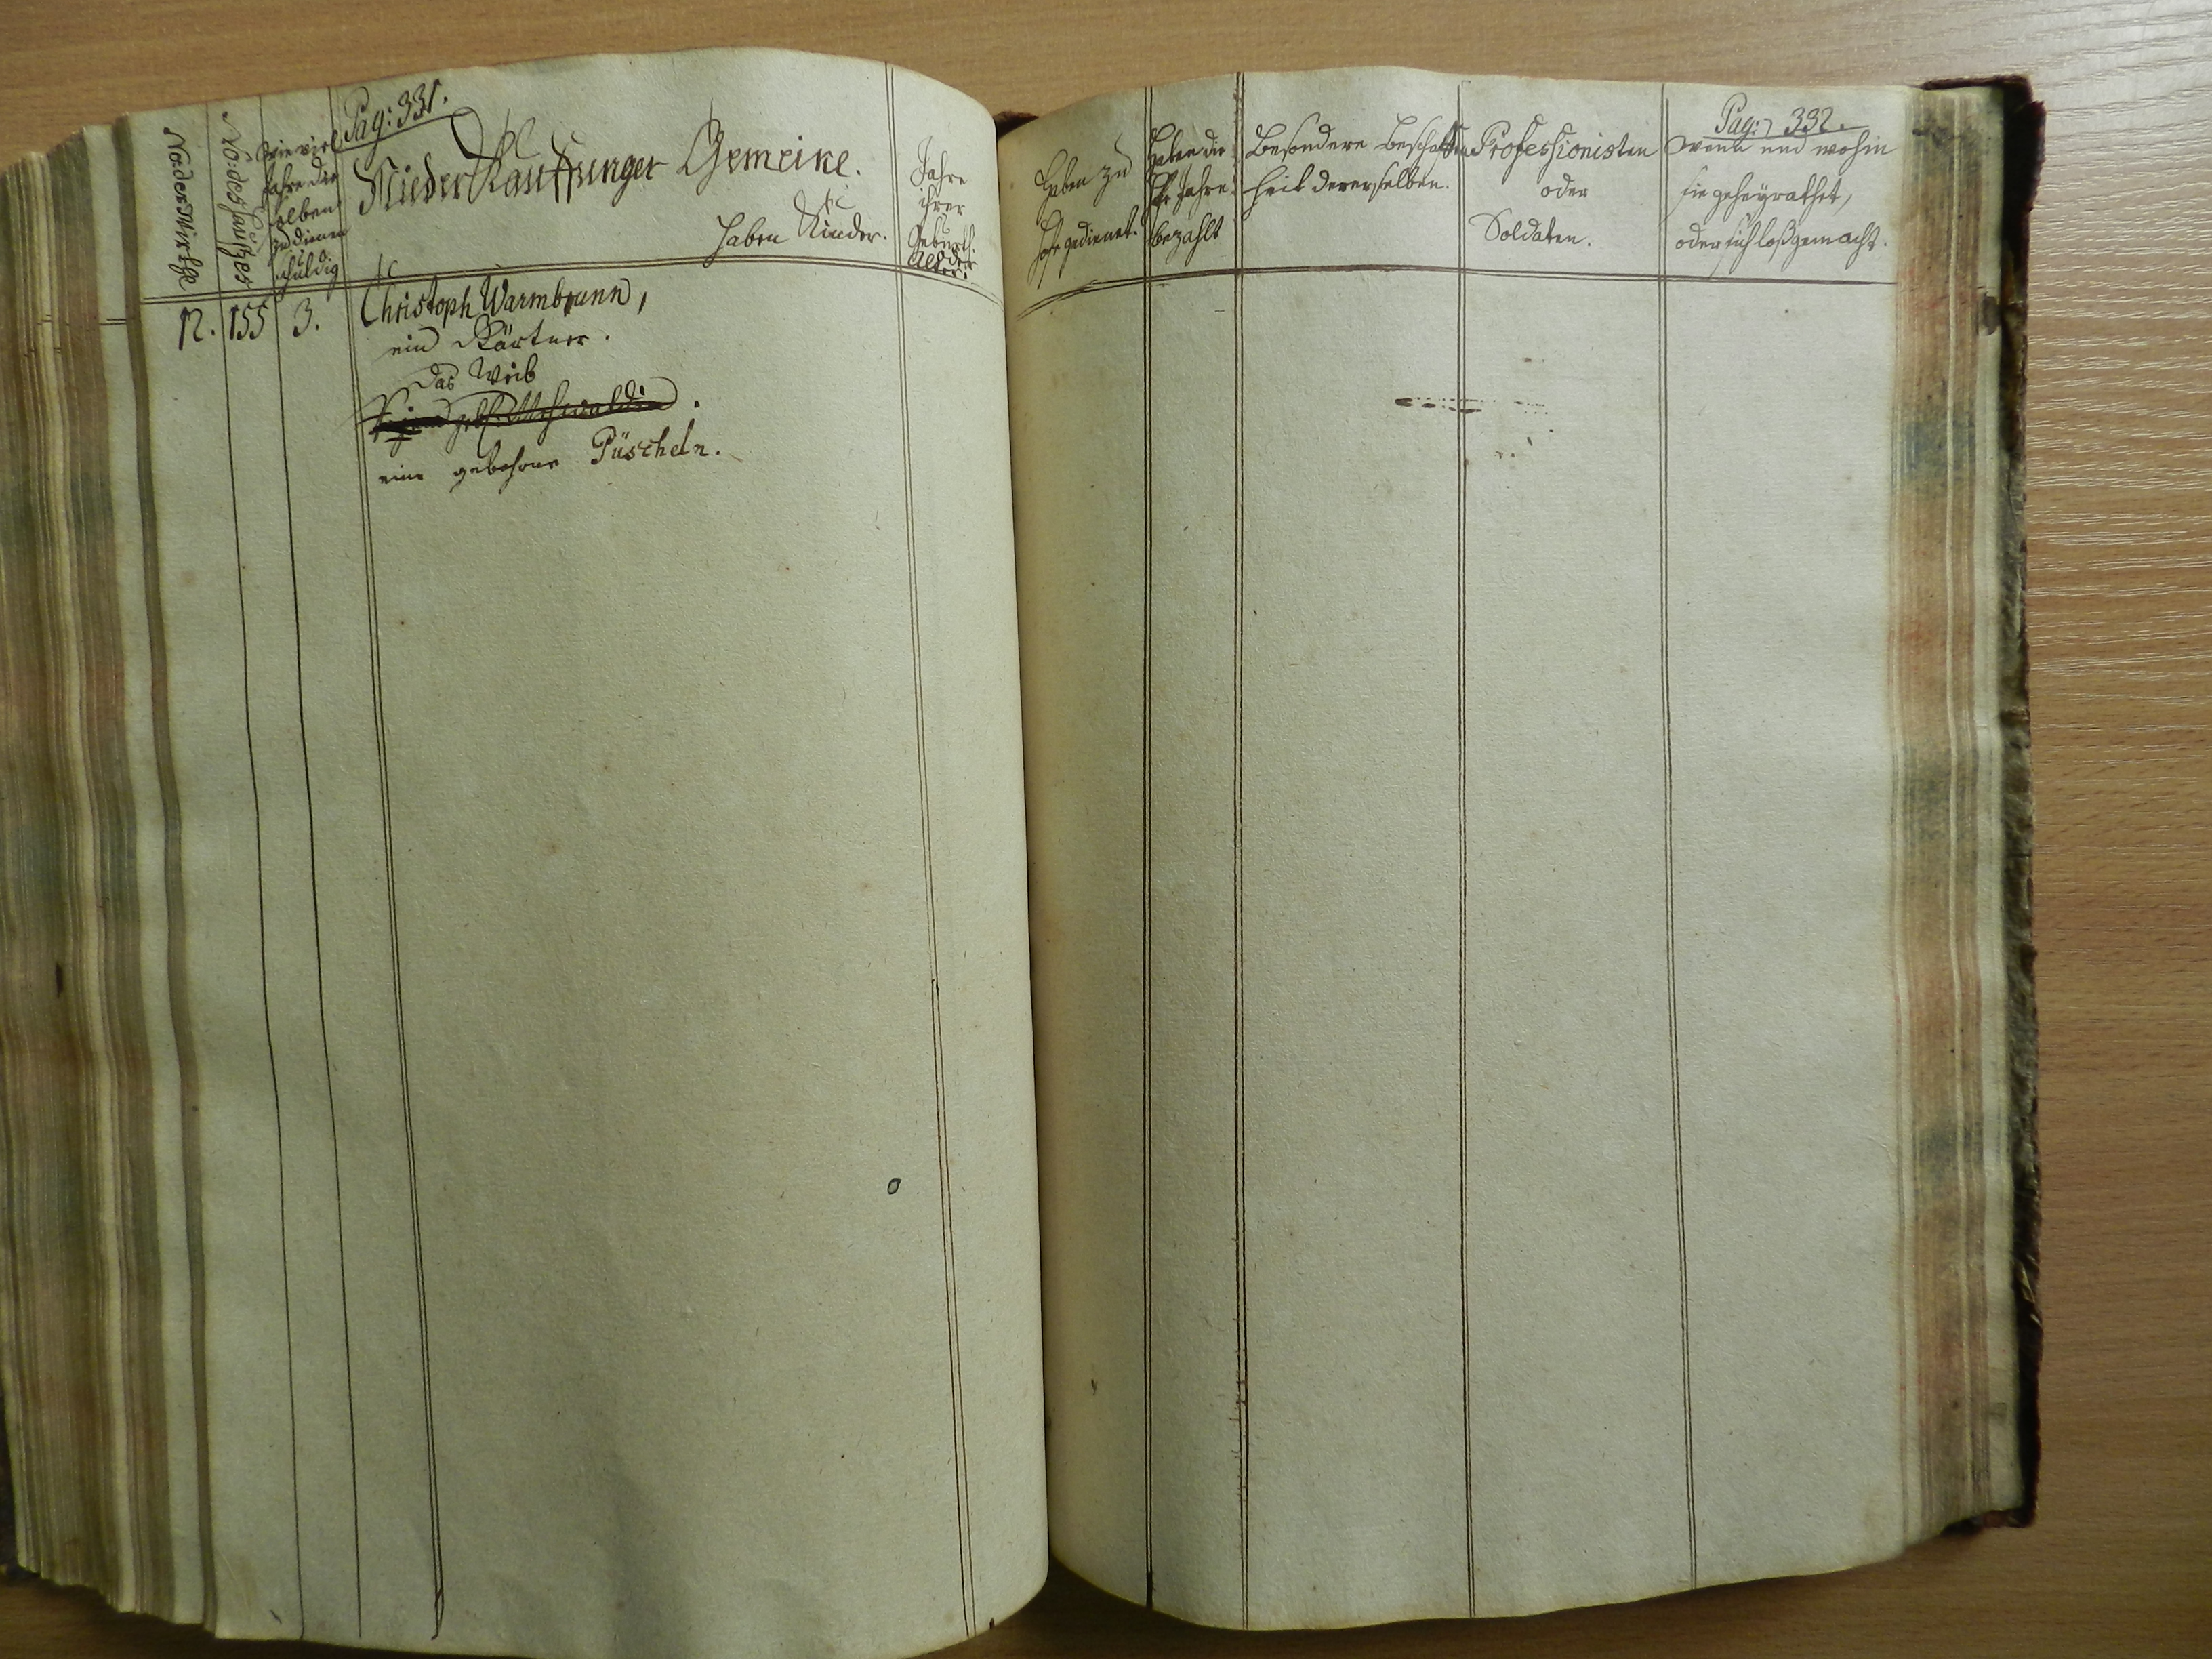 Pag: 331.
No: der Wirthe
No: des Hauses
wie viel
Jahre die
selben
zu dienen
schuldig
Nieder Kauffunger Gemeine.
haben Kinder.
Jahre
ihrer
Geburth
oder
Alter.
12. 155 3. Christoph Warmbrunn,
ein Gärtner.
Das Weib
eine gebohrne Püscheln.
Pag: 332.
Haben zu
Hofe gedienet.
Haben die
Jahre
bezahlt
Besondere Beschaffen
heit dererselben.
Professionisten
oder
Soldaten.
wenn und wohin
sie geheyrathet,
oder sich loßgemacht.